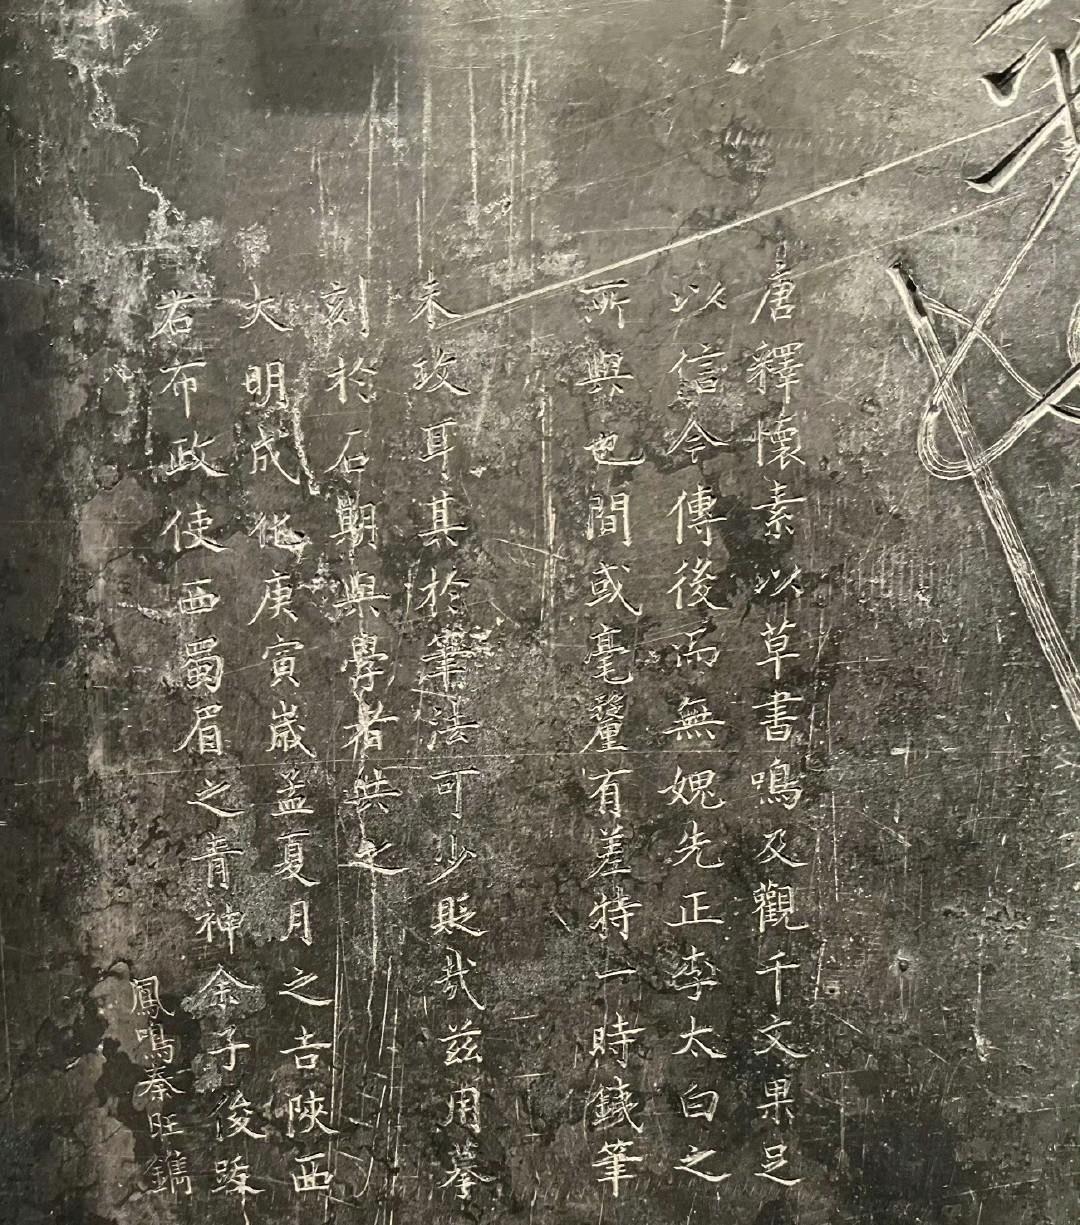 唐釋懷素以草書鳴及觀千文果足
以信今傳後而無媿先正李太白之
所與也間或毫釐有差特一時鐵筆
未攻耳其於筆法可少貶哉兹用摹
刻於石期與學者共之
大明成化庚寅歲孟夏月之吉陝西
右布政使西蜀眉之青神余子俊跋
鳳鳴秦旺鐫